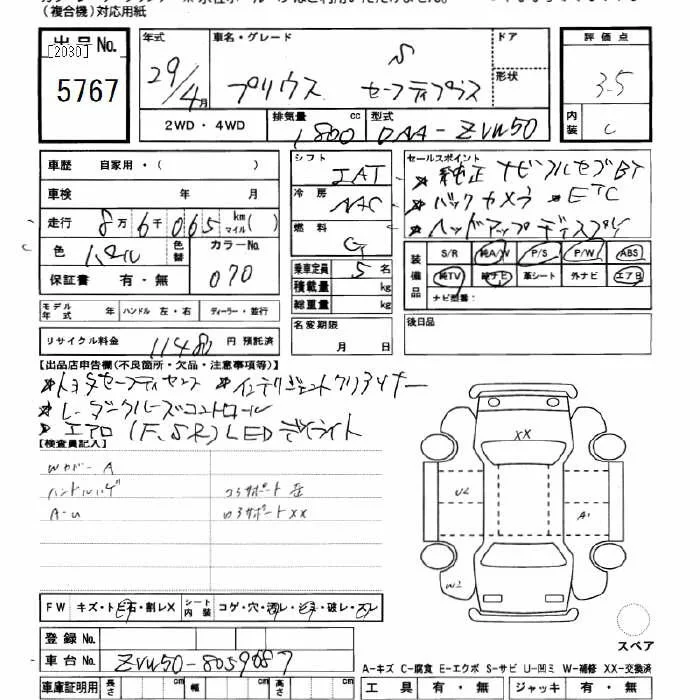 （複合機）対応用紙
出品No.
[2030]
5767
年式
29/4月
車名・グレード
プリウス S セーフティプラス
ドア
形状
評価点
3.5
内装
C
2WD・4WD
排気量
1800 cc
型式
DAA-ZVW50
車歴 自家用・( )
車検 年 月
走行 8万6千065 km マイル( )
色 パール 色替 カラーNo. 070
保証書 有・無
シフト
IAT
冷房
AAC
燃料
G
乗車定員 5名
積載量 kg
総重量 kg
セールスポイント
★純正ナビフルセグBT
★バックカメラ ★ETC
★ヘッドアップディスプレイ
装備品
S/R 純A/W P/S P/W ABS
純TV 純ナビ 革シート 外ナビ エアB
ナビ型番:
モデル年式 年 ハンドル 左・右 ディーラー・並行
名変期限
月 日
後日品
リサイクル料金 11480 円 預託済
【出品店申告欄(不良箇所・欠品・注意事項等)】
★トヨタセーフティセンス ★インテリジェントクリアソナー
★レーダークルーズコントロール
★エアロ(F,S,R)LEDデイライト
【検査員記入】
Wカバー A
ハンドルハゲ コアサポート
A-U ロアサポートXX
XX
U2
A1
W2
FW キズ・トビ石・割レX シート内装 コゲ・穴・濁レ・ヨゴレ・破レ・スレ
登録No.
車台No. ZVW50-8059087
スペア
A-キズ C-腐食 E-エクボ S-サビ U-凹ミ W-補修 XX-交換済
車庫証明用 長さ cm 幅 cm 高さ cm
工具 有・無 ジャッキ 有・無